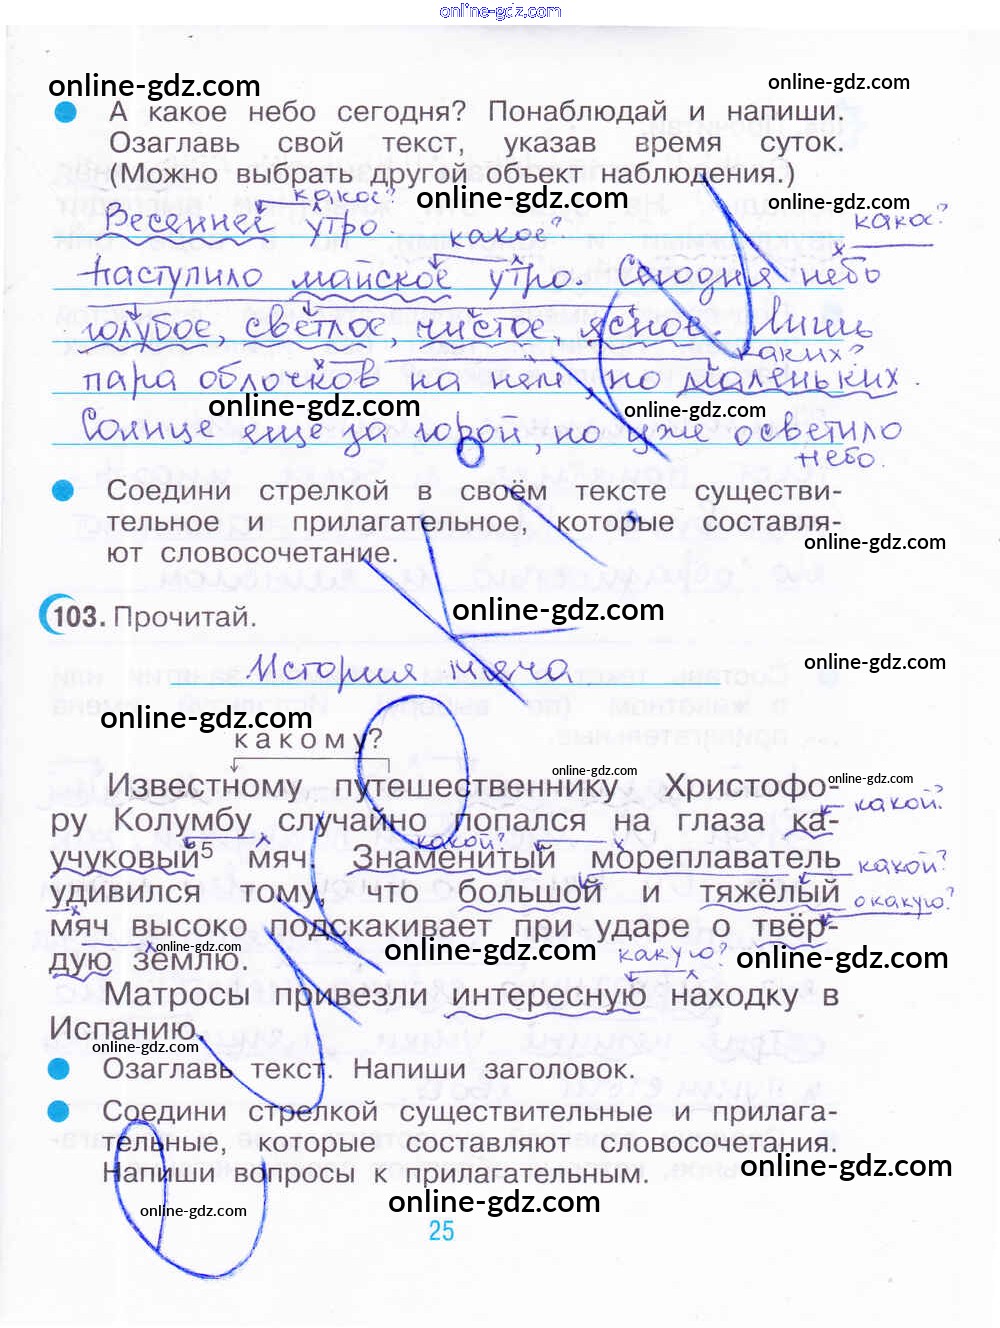 online-gdz.com
online-gdz.com
online-gdz.com
А какое небо сегодня? Понаблюдай и напиши.
Озаглавь свой текст, указав время суток.
(Можно выбрать другой объект наблюдения.)
online-gdz.com
online-gdz.com
какое?
Весеннее утро.
какое?
какое?
Наступило майское утро. Сегодня небо
голубое, светлое, чистое, ясное. Лишь
каких?
пара облачков на нём, но маленьких.
online-gdz.com
online-gdz.com
Солнце ещё за горой, но уже осветило
небо.
Соедини стрелкой в своём тексте существи-
тельное и прилагательное, которые составля-
ют словосочетание.
online-gdz.com
103. Прочитай.
online-gdz.com
История мяча
online-gdz.com
online-gdz.com
какому?
online-gdz.com
online-gdz.com
Известному путешественнику Христофо-
ру Колумбу случайно попался на глаза ка-
какой?
какой?
учуковый⁵ мяч. Знаменитый мореплаватель
какой?
удивился тому, что большой и тяжёлый
о какую?
мяч высоко подскакивает при ударе о твёр-
online-gdz.com
online-gdz.com
online-gdz.com
какую?
дую землю.
Матросы привезли интересную находку в
Испанию.
online-gdz.com
Озаглавь текст. Напиши заголовок.
Соедини стрелкой существительные и прилага-
тельные, которые составляют словосочетания.
Напиши вопросы к прилагательным.
online-gdz.com
online-gdz.com
online-gdz.com
25